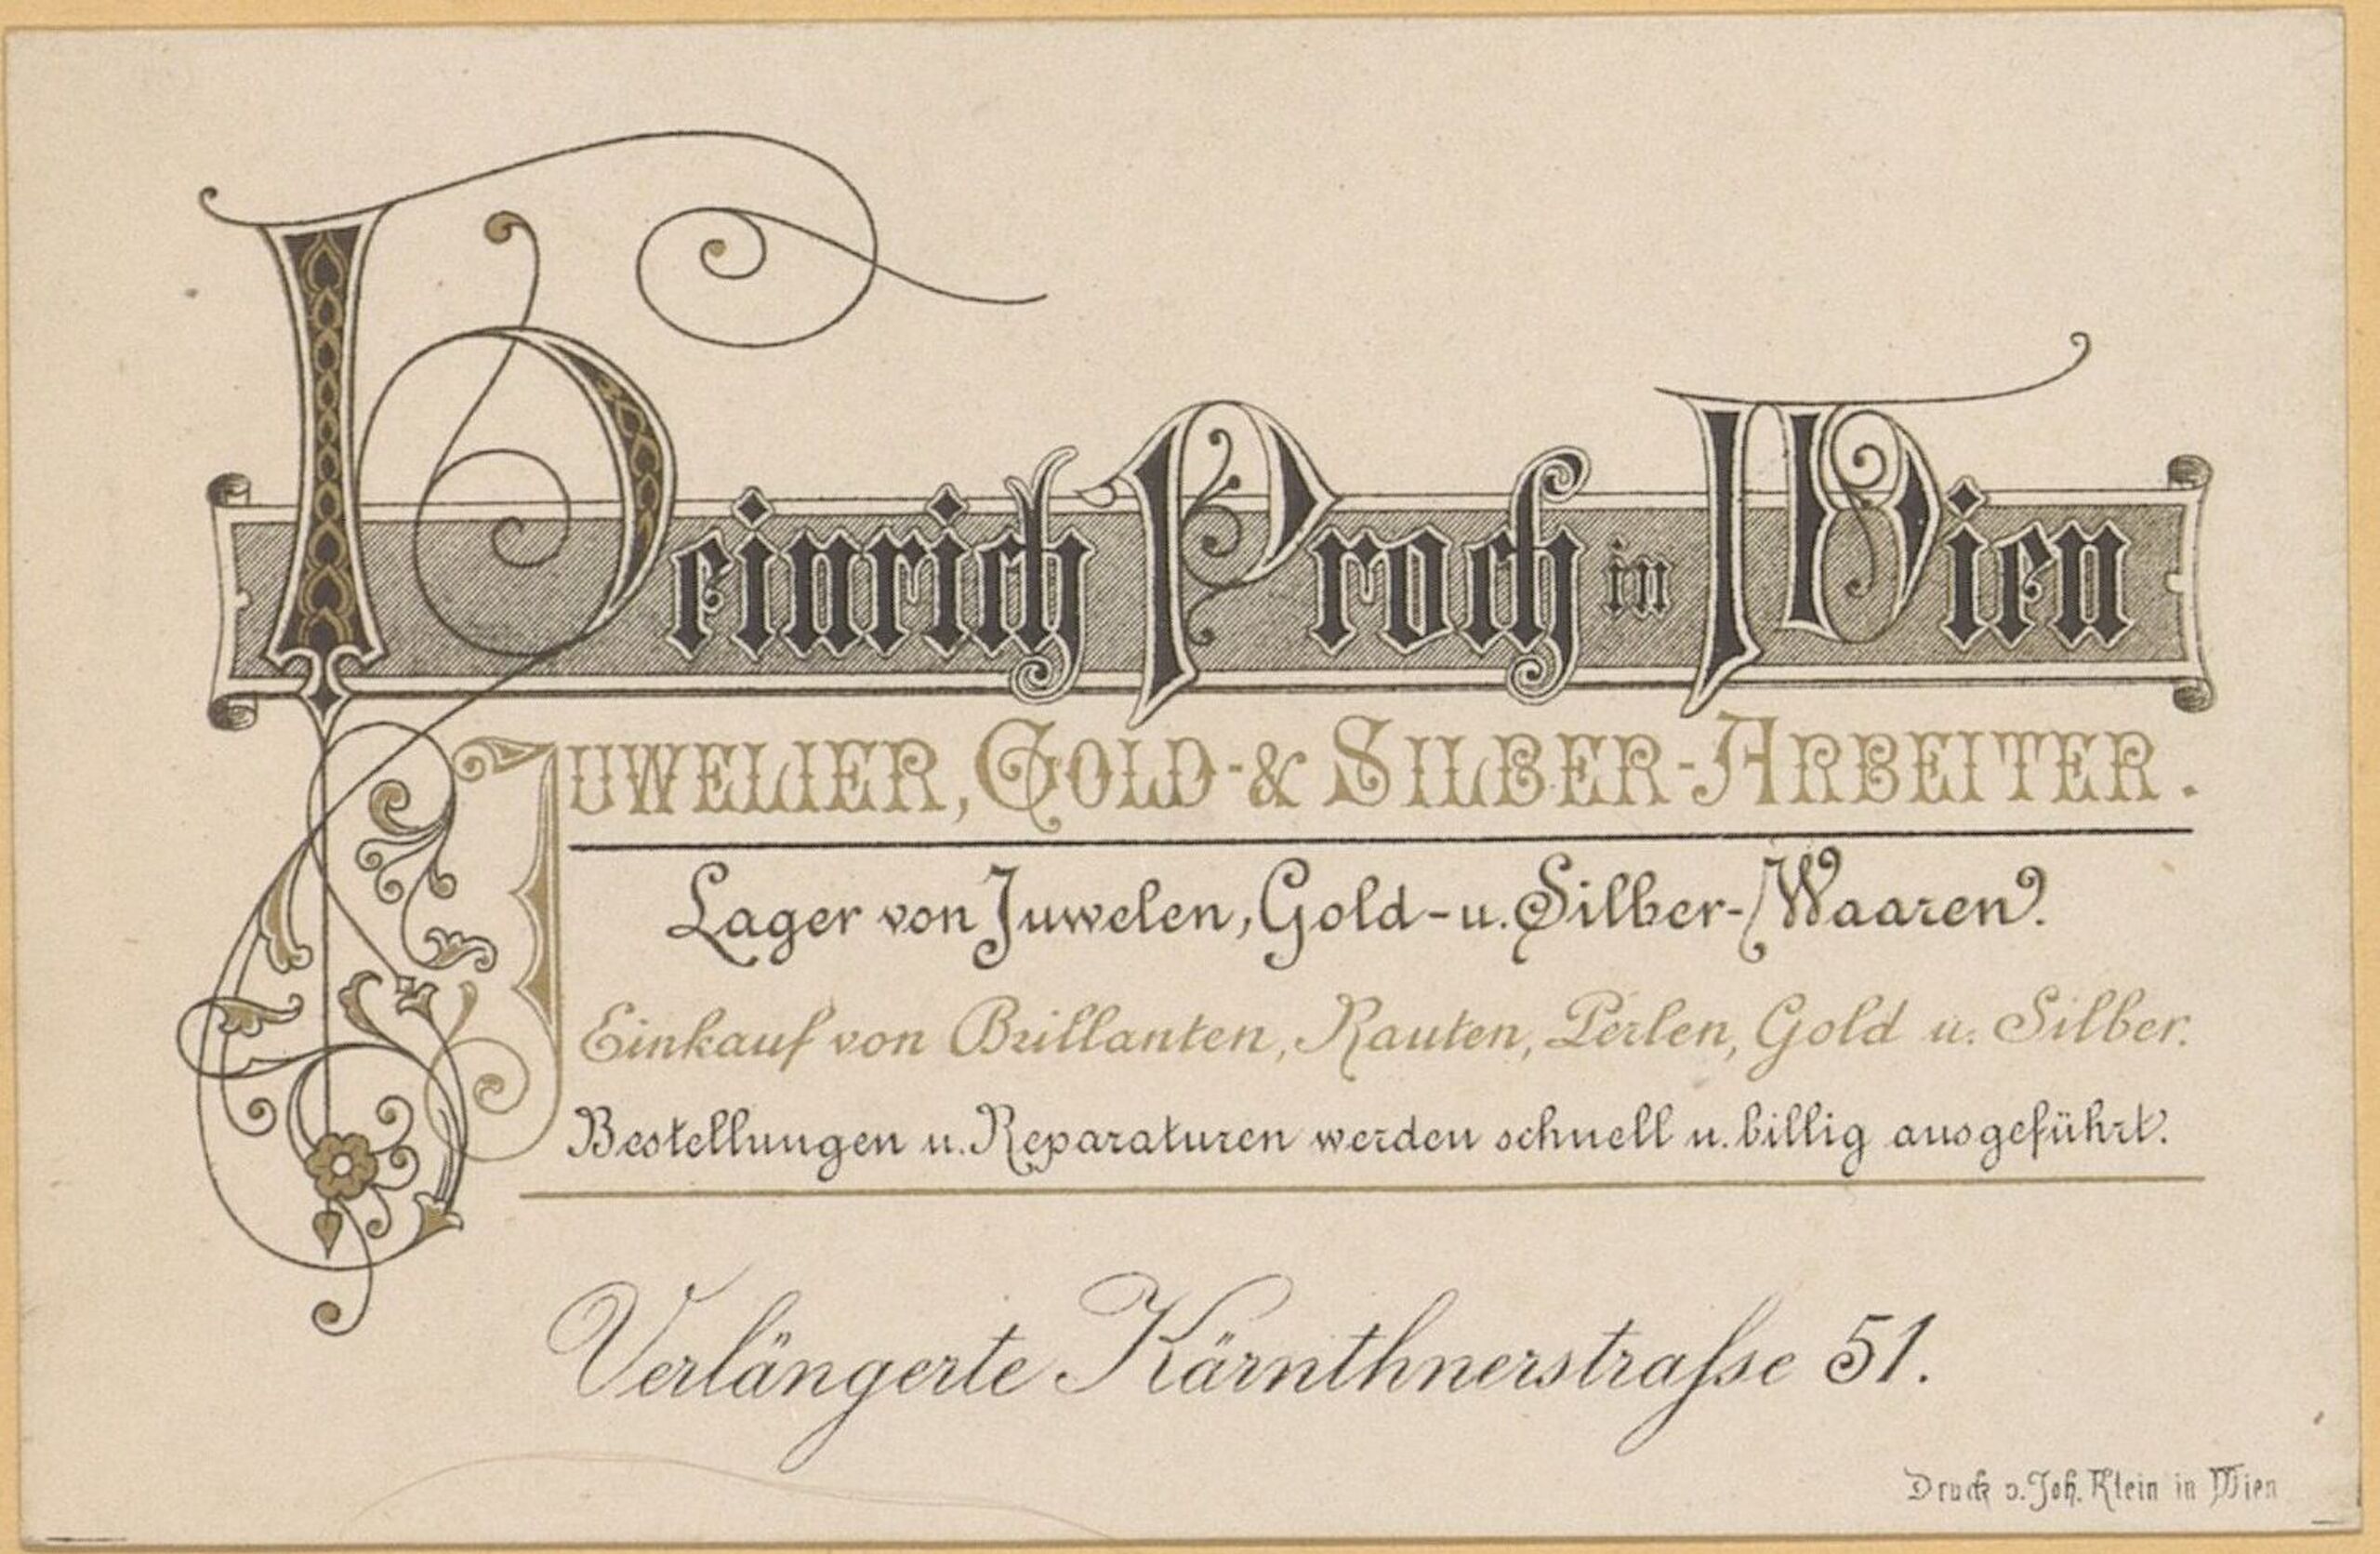 Heinrich Proch in Wien
JUWELIER, GOLD-& SILBER-ARBEITER.
Lager von Juwelen, Gold-u. Silber-Waaren.
Einkauf von Brillanten, Rauten, Perlen, Gold u. Silber.
Bestellungen u. Reparaturen werden schnell u. billig ausgeführt.
Verlängerte Kärnthnerstraſse 51.
Druck v. Joh. Klein in Wien